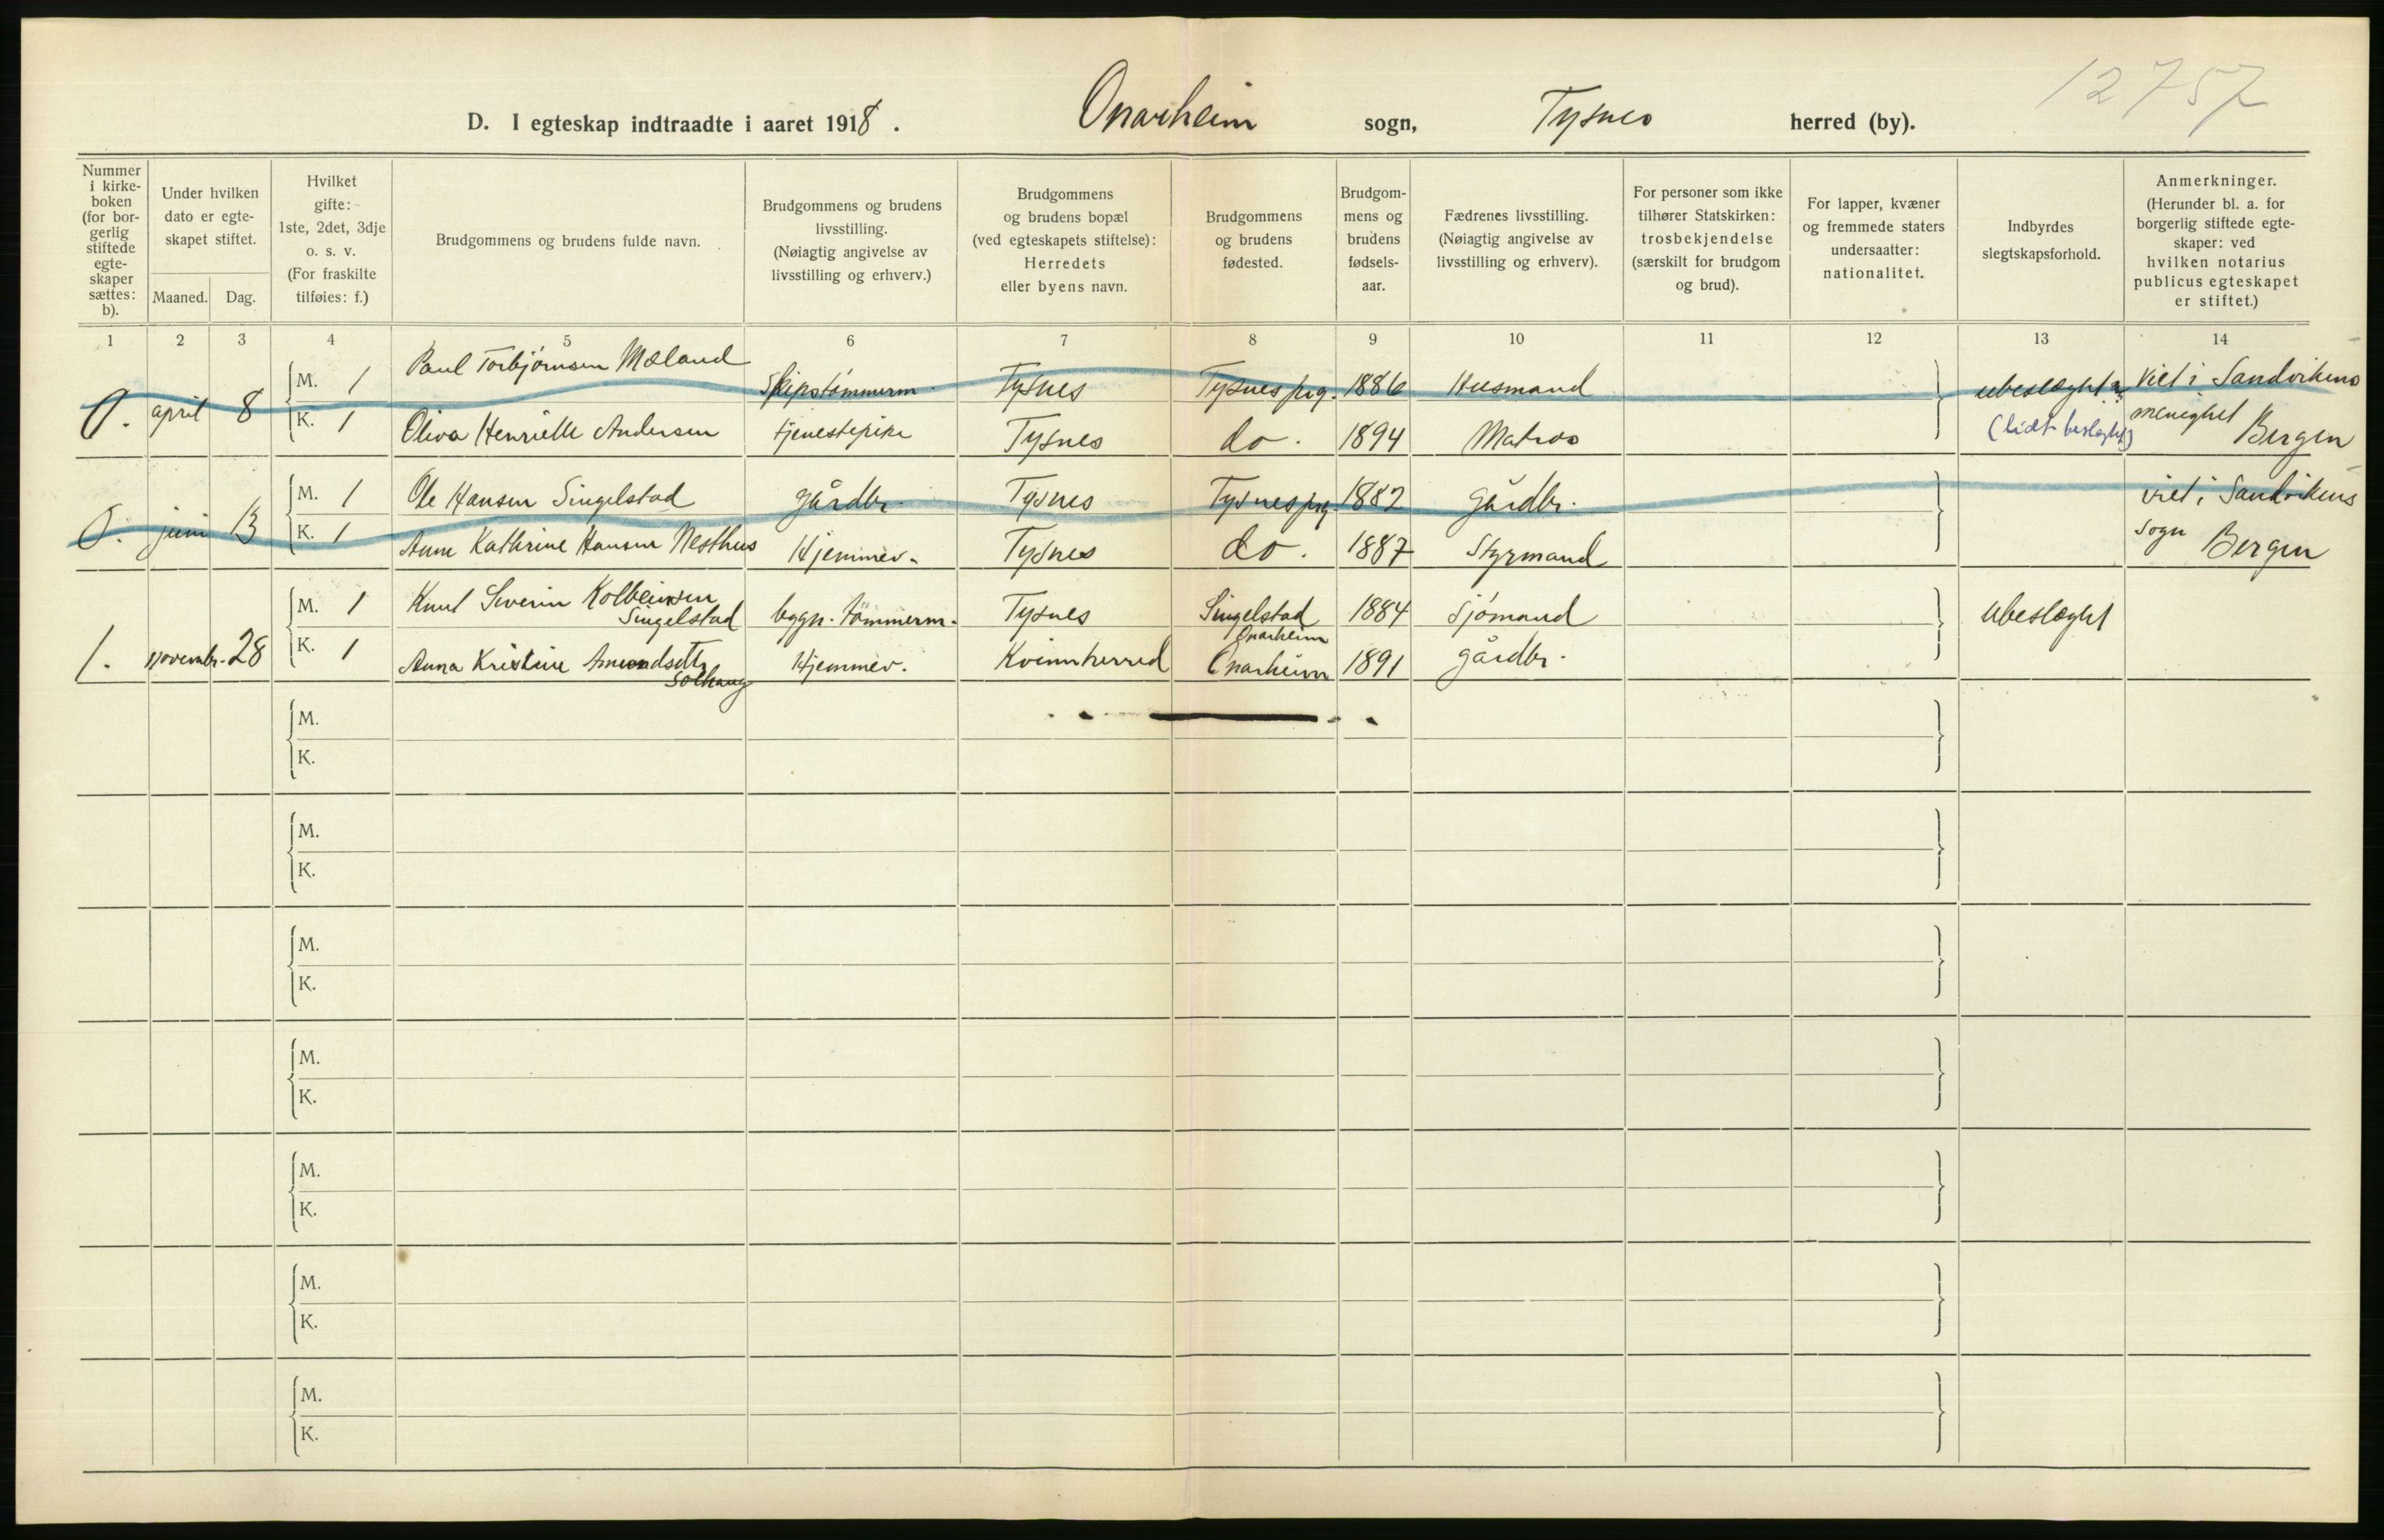 12757
D. I egteskap indtraadte i aaret 1918. Onarheim sogn, Tysnes herred (by).
Nummer i kirke-boken (for bor-gerlig stiftede egte-skaper sættes: b).
Under hvilken dato er egte-skapet stiftet.
Maaned. Dag.
Hvilket gifte: 1ste, 2det, 3dje o. s. v. (For fraskilte tilføies: f.)
Brudgommens og brudens fulde navn.
Brudgommens og brudens livsstilling. (Nøiagtig angivelse av livsstilling og erhverv.)
Brudgommens og brudens bopæl (ved egteskapets stiftelse): Herredets eller byens navn.
Brudgommens og brudens fødested.
Brudgom-mens og brudens fødsels-aar.
Fædrenes livsstilling. (Nøiagtig angivelse av livsstilling og erhverv).
For personer som ikke tilhører Statskirken: trosbekjendelse (særskilt for brudgom og brud).
For lapper, kvæner og fremmede staters undersaatter: nationalitet.
Indbyrdes slegtskapsforhold.
Anmerkninger. (Herunder bl. a. for borgerlig stiftede egte-skaper: ved hvilken notarius publicus egteskapet er stiftet.)
1 2 3 4 5 6 7 8 9 10 11 12 13 14
0. april 8 M. 1 Paul Torbjørnsen Mæland Skipstømmerm. Tysnes Tysnes prg. 1886 Husmand ubeslægtet Viet i Sandvikens
K. 1 Oliva Henriette Andersen tjenestepike Tysnes do. 1894 Matros (lidt beslægtet) menighet Bergen
0. juni 13 M. 1 Ole Hansen Singelstad gårdbr. Tysnes Tysnes prg. 1882 gårdbr. viet i Sandvikens
K. 1 Anne Kathrine Hansen Nesthus Hjemmev. Tysnes do. 1887 Styrmand sogn Bergen
1. novembr. 28 M. 1 Knut Severin Kolbeinsen Singelstad bygn. tømmerm. Tysnes Singelstad Onarheim 1884 Sjömand Ubeslægtet
K. 1 Anna Kristine Amundsdtr Solhaug Hjemmev. Kvinnherred Onarheim 1891 gårdbr.
M.
K.
M.
K.
M.
K.
M.
K.
M.
K.
M.
K.
M.
K.